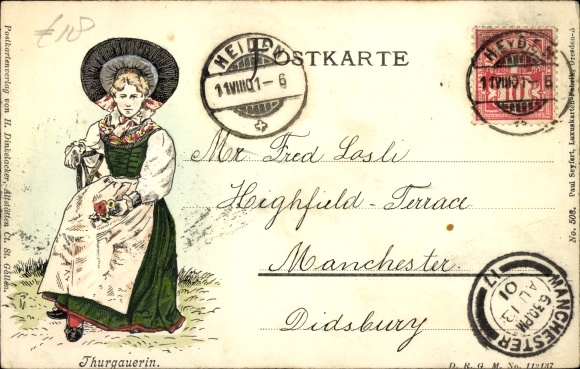 £ 18
POSTKARTE
HEIDEN
11 VIII 01 - 6
HEYDEN
11 VIII 01 - 6
10
Mr Fred Losli
Heghfield-Terrace
Manchester.
Didsbury
MANCHESTER
6.30 PM
AU 13
01
17
Thurgauerin.
D. R. G. M. No. 112137
Postkartenverlag von H. Dinkelacker, Altstätten Ct. St. Gallen.
No. 508. Paul Seyfert, Luxuskarten-Fabrik, Dresden-A